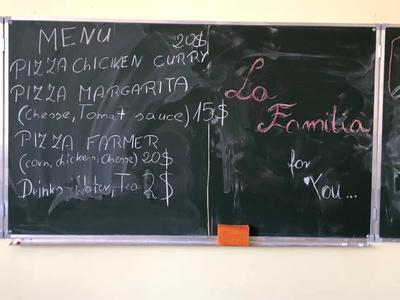 MENU 20$
PIZZA CHICKEN CURRY
PIZZA MARGARITA
(Chesse, Tomat sauce) 15$
PIZZA FARMER
(corn, chicken, Chesse) 20$
Drinks - Water, Tea 2$
La
Familia
for
You...